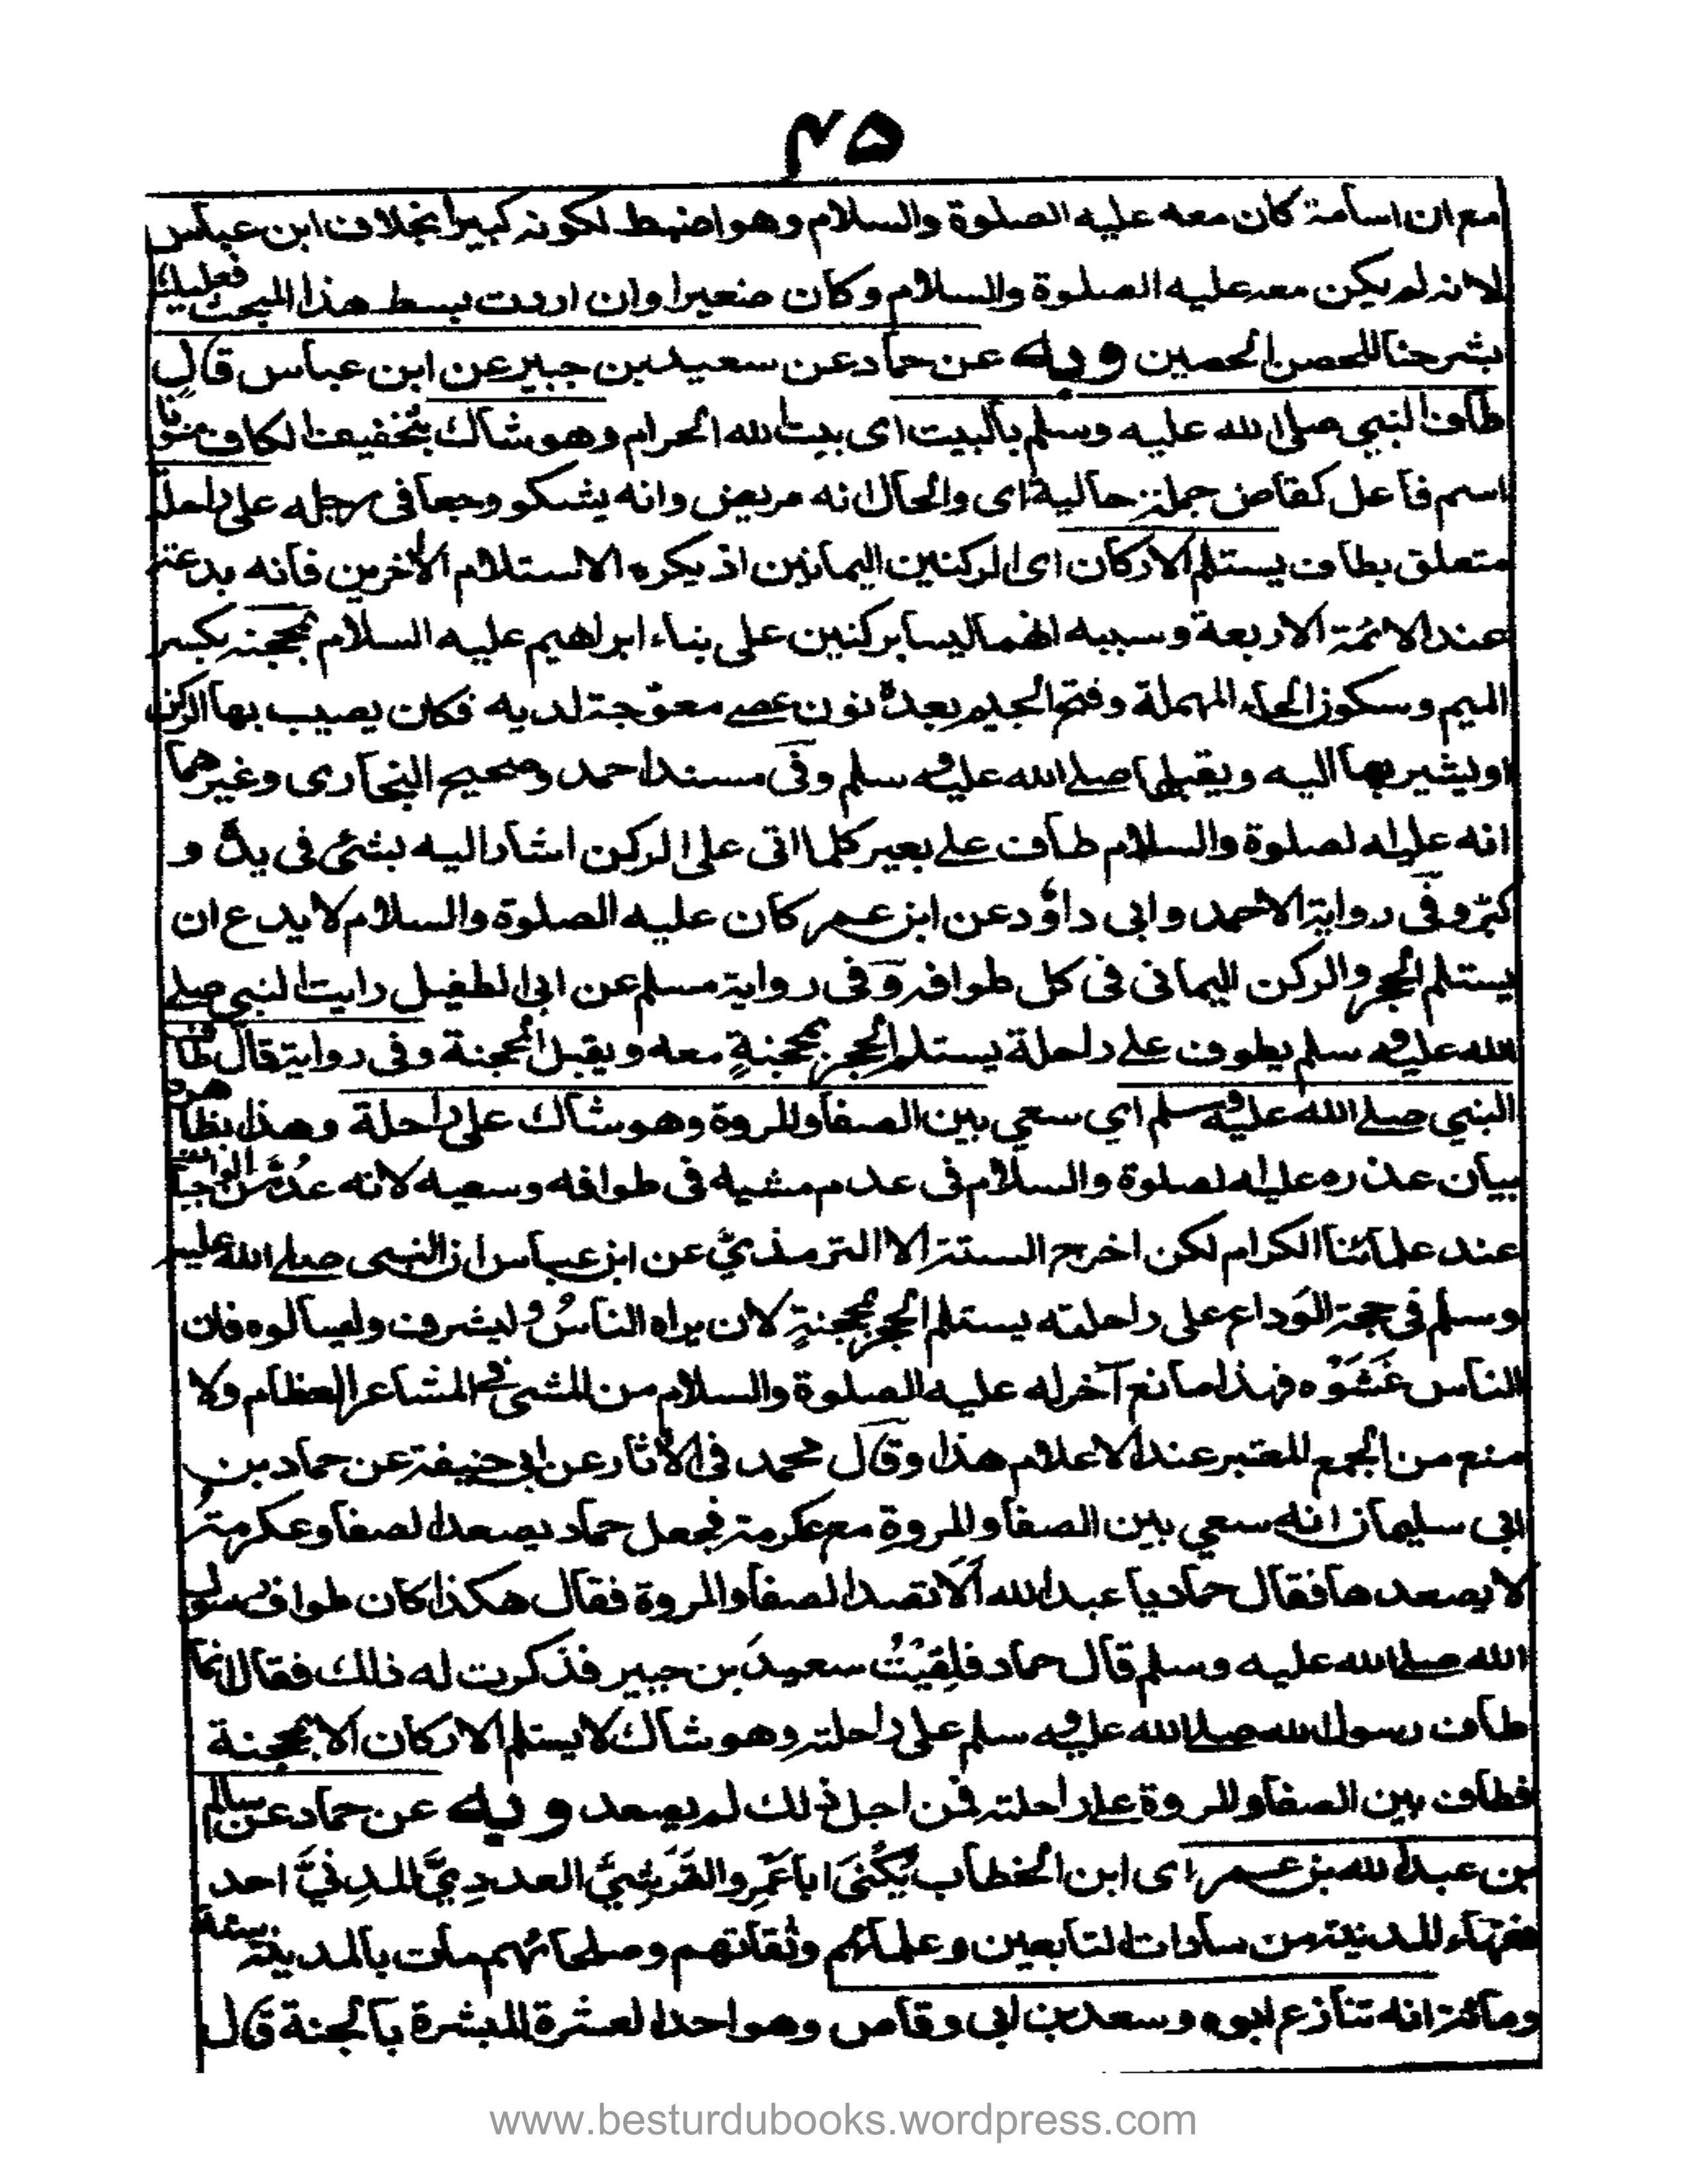 ٤٥
مع ان اسامة كان معه عليه الصلوة والسلام وهو اضبط لكونه كبيرا بخلاف ابن عباس
لانه لم يكن معه عليه الصلوة والسلام وكان صغيرا وان اردت بسط هذا المبحث فعليك
بشرحنا للحصن الحصين وبه عن حماد عن سعيد بن جبير عن ابن عباس قال
طاف النبي صلى الله عليه وسلم بالبيت اى بيت الله الحرام وهو شاك بتخفيف الكاف منونا
اسم فاعل كقاض جملة حالية اى والحال انه مريض وانه يشكو وجعا فى رجله على راحلة
متعلق بطاف يستلم الاركان اى الركنين اليمانيين اذ يكره الاستلام الاخرين فانه بدعة
عند الائمة الاربعة وسببه انهما ليسا بركنين على بناء ابراهيم عليه السلام بمحجنة بكسر
الميم وسكون الحاء المهملة وفتح الجيم بعدة نون عصے معوّجة لديه فكان يصيب بها الركن
او يشير بها اليه ويقبلها صلے الله عليه وسلم وفى مسند احمد وصحيح البخارى وغيرهما
انه عليه الصلوة والسلام طاف علے بعير كلما اتى على الركن اشار اليه بشئ فى يدة و
كبّر وفى رواية لاحمد وابى داؤد عن ابن عمر كان عليه الصلوة والسلام لا يدع ان
يستلم الحجر والركن اليمانى فى كل طوافه وفى رواية مسلم عن ابى الطفيل رايت النبى صلے
الله عليه وسلم يطوف علے راحلة يستلم الحجر بمحجنةٍ معه ويقبل المحجنة وفى رواية قال طاف
النبي صلے الله عليه وسلم اي سعي بين الصفا والمروة وهو شاك على راحلة وهذا بظاهره
بيان عذره عليه الصلوة والسلام فى عدم مشيه فى طوافه وسعيه لانه عُدّ من الواجبات
عند علمائنا الكرام لكن اخرج الستة الا الترمذيّ عن ابن عباس ان النبى صلے الله عليه
وسلم فى حجة الوَداع على راحلته يستلم الحجر بمحجنةٍ لان يراه الناسُ وليشرف وليسالوه فان
الناس غَشَوْه فهذا مانع آخر له عليه الصلوة والسلام من المشى فى المشاعر العظام ولا
منع من الجمع المعتبر عند الاعلام هذا وقال محمد فى الآثار عن ابى حنيفة عن حماد بن
ابى سليمان انه سعي بين الصفا والمروة مع عكرمة فجعل حماد يصعد الصفا وعكرمةُ
لا يصعدها فقال حماد يا عبد الله اَلَا تصد الصفا والمروة فقال هكذا كان طواف رسول
الله صلے الله عليه وسلم قال حماد فلقِيْتُ سعيدَ بن جبير فذكرت له ذلك فقال انما
طاف رسول الله صلے الله عليه وسلم على راحلته وهو شاك لا يستلم الاركان الا بمحجنة
فطاف بين الصفا والمروة علے راحلته فمن اجل ذلك لم يصعد وبه عن حماد عن سالم
بن عبد الله بن عمر اى ابن الخطاب يُكْنٰى ابا عَمْرٍو القُرَشِيَّ العددِيَّ المدِنيَّ احد
فقهاء المدينة من سادات التابعين وعلمائهم وثقاتهم وصلحائهم مات بالمدينة سنة
ومائة انه تنازع ابوه وسعد بن ابى وقاص وهو احد العشرة المبشرة بالجنة قال
www.besturdubooks.wordpress.com